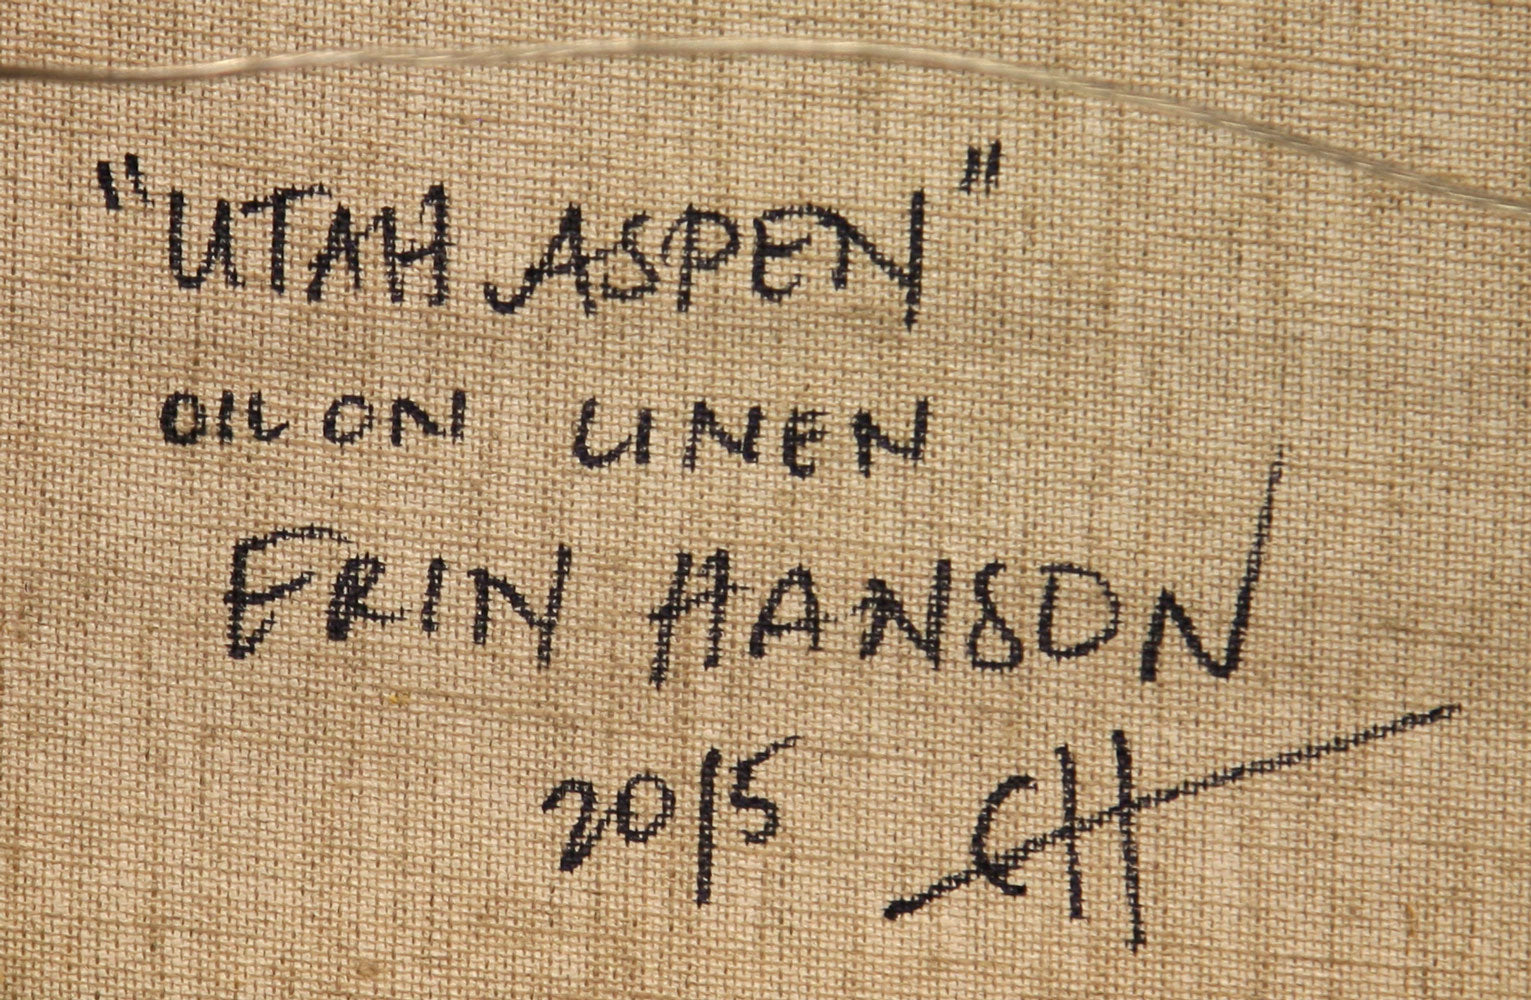 "UTAH ASPEN"
OIL ON LINEN
ERIN HANSON
2015 EH